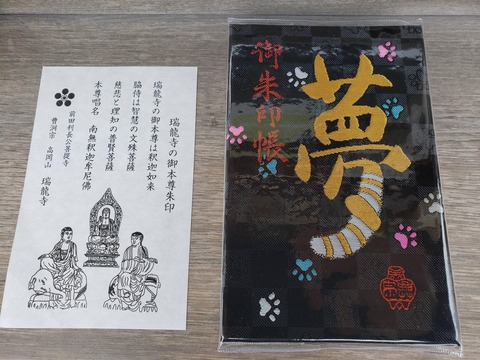 瑞龍寺の御本尊朱印
瑞龍寺の御本尊は釈迦如来
脇侍は智慧の文殊菩薩
慈悲と理知の普賢菩薩
本尊唱名　南無釈迦牟尼佛
前田利長公菩提寺
曹洞宗　高岡山　瑞龍寺
御朱印帳
夢